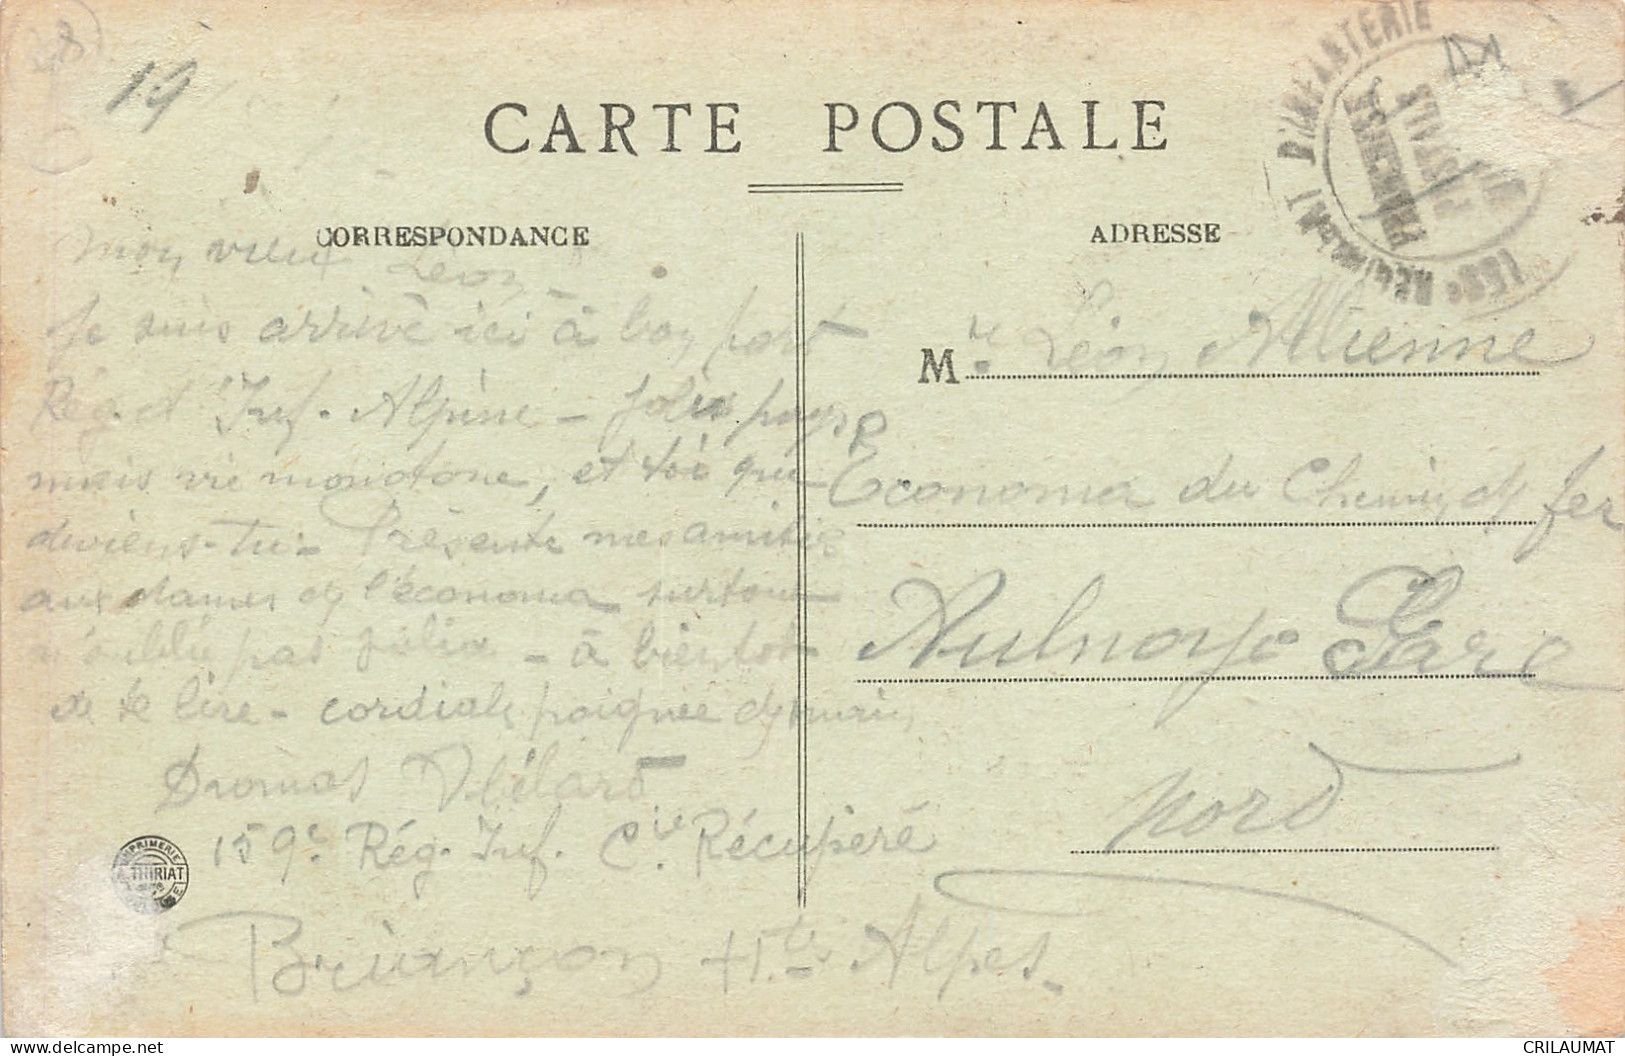 19
CARTE POSTALE
CORRESPONDANCE
ADRESSE
159e REGIMENT D'INFANTERIE
FRANCHISE
POSTALE
Mon vieux Léon
Je suis arrivé ici à bon port
Rég. d'Inf. Alpine - Jolis pays
mais vie monotone, et toi que
deviens-tu - Présente mes amitiés
aux dames de l'économa surtout
n'oublie pas Jolia - à bientôt
de te lire - cordiale poignée de main
159e Rég. Inf. Cie Récupéré
Briançon Htes Alpes
Mr. Léon
Economa du Chemin de fer
Aulnoye Gare
Nord
IMPRIMERIE
A. THIRIAT
CRILAUMAT